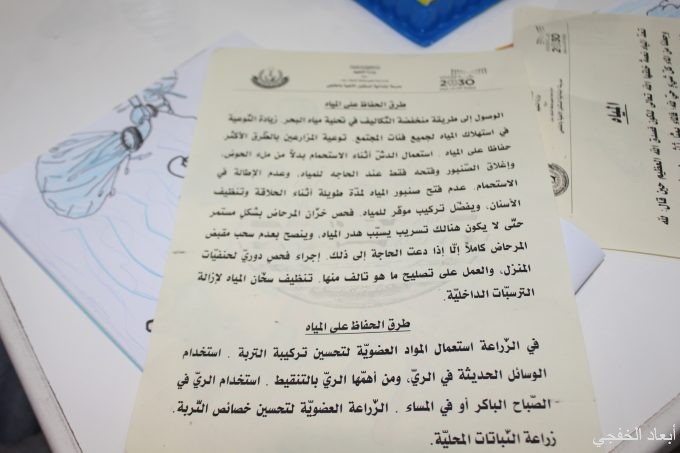 2030
طرق الحفاظ على المياه
الوصول إلى طريقة منخفضة التكاليف في تحلية مياه البحر. زيادة التوعية
في استهلاك المياه لجميع فئات المجتمع. توعية المزارعين بالطّرق الأكثر
حفاظا على المياه . استعمال الدش أثناء الاستحمام بدلاً من ملء الحوض،
وإغلاق الصّنبور وفتحه فقط عند الحاجه للمياه، وعدم الإطالة في
الاستحمام. عدم فتح صنبور المياه لمدّة طويلة أثناء الحلاقة وتنظيف
الأسنان، ويفضّل تركيب موفّر للمياه. فحص خزّان المرحاض بشكلٍ مستمر
حتّى لا يكون هنالك تسريب يسبّب هدر المياه، وينصح بعدم سحب مقبض
المرحاض كاملاً إلّا إذا دعت الحاجة إلى ذلك. إجراء فحصٍ دوريّ لحنفيّات
المنزل، والعمل على تصليح ما هو تالف منها. تنظيف سخّان المياه لإزالة
الترسبّات الداخليّة.
طرق الحفاظ على المياه
في الزّراعة استعمال المواد العضويّة لتحسين تركيبة التربة . استخدام
الوسائل الحديثة في الريّ، ومن أهمّها الريّ بالتنقيط . استخدام الريّ في
الصّباح الباكر أو في المساء . الزّراعة العضويّة لتحسين خصائص التّربة.
زراعة النّباتات المحليّة.
2030
المياه
أبعاد الخفجي